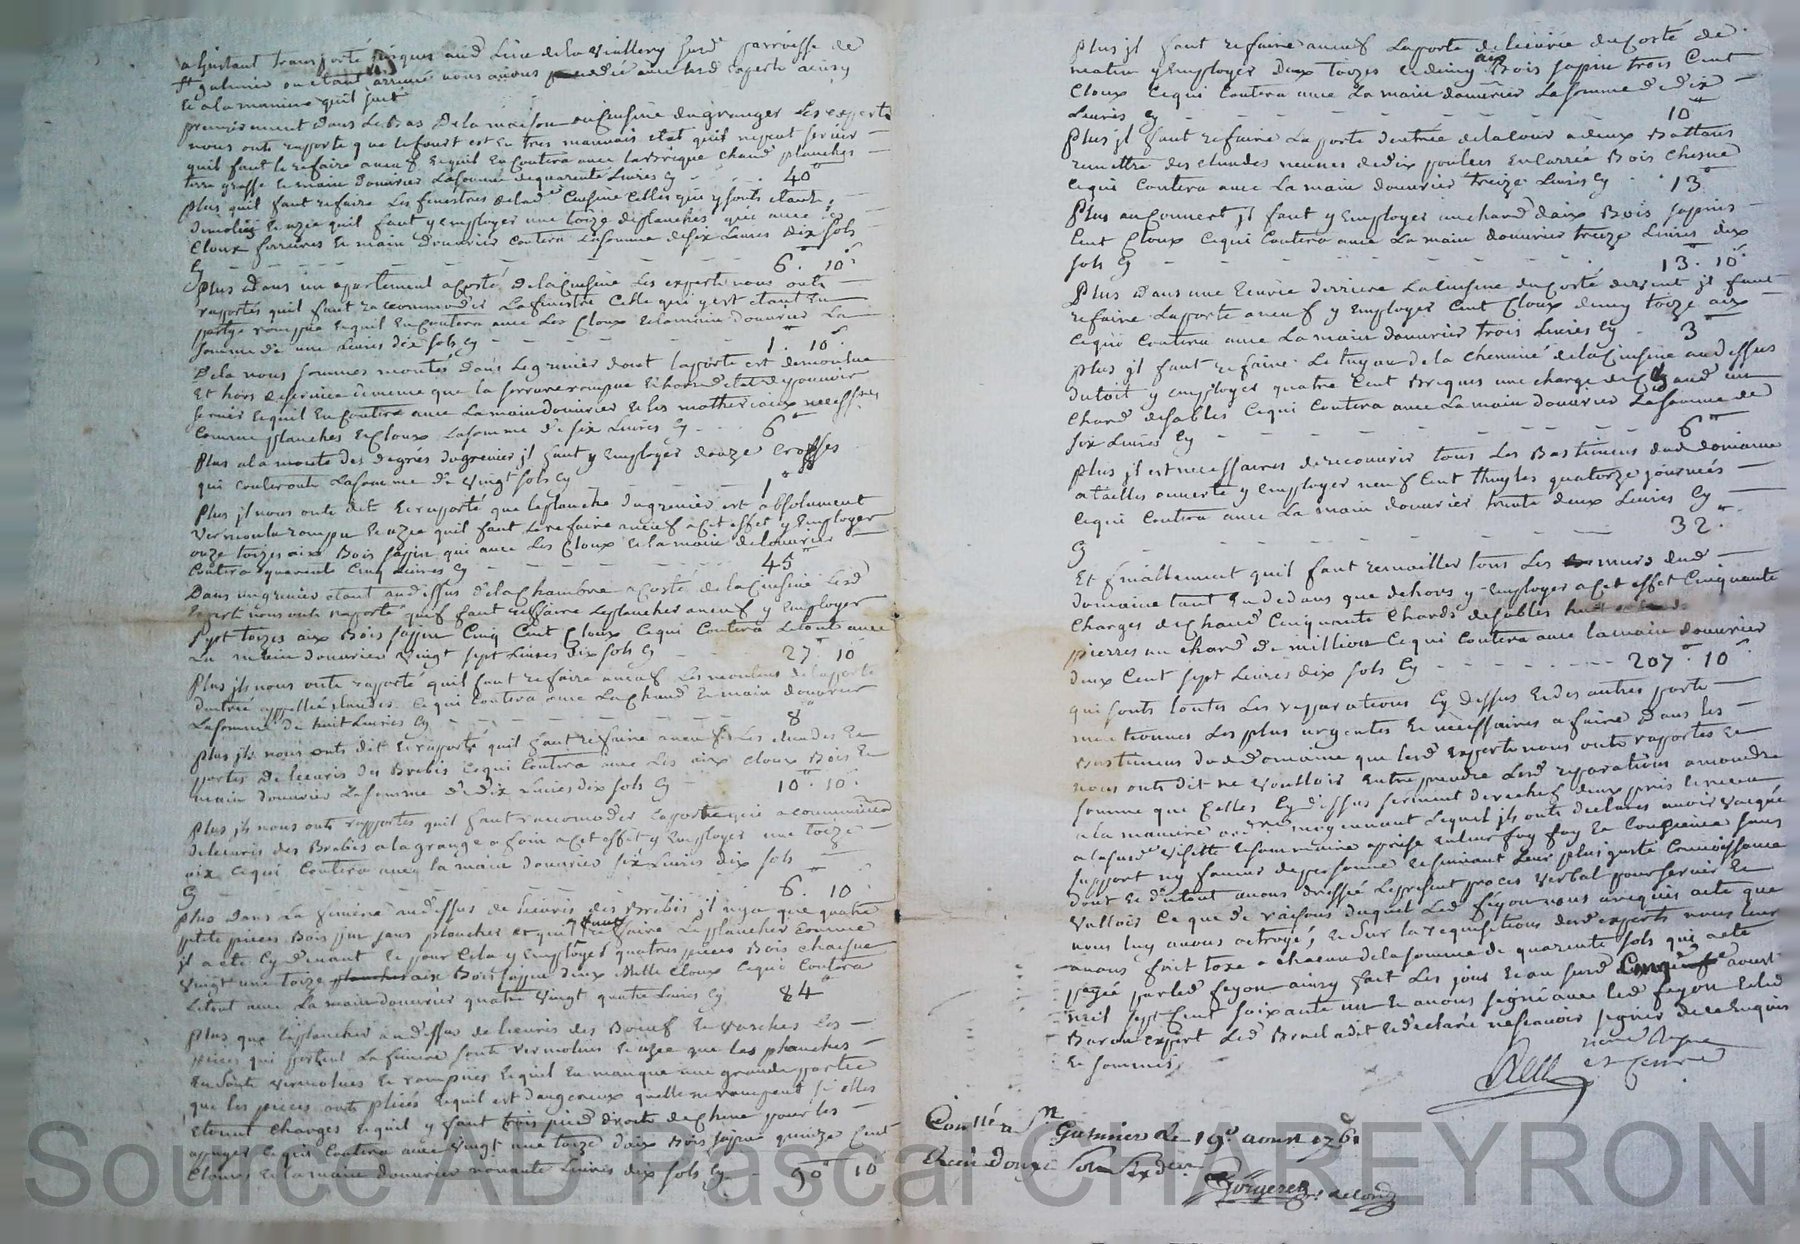 a linstant transporté jusques aud Lieu de la Viallery surd parroisse de
st galmier ou etant arrivé nous avons procedé avec lesd experts ainsy
Et a la maniere quil suit
premierement dans Le bas De la maison ou Cuisine du granger Les experts
nous onts raporté que le fourt est En tres mauvais etat quil nepeut servir
quil faut le refaire aneuf Et quil En Coutera avec la brique Chaud planches
terre grasse Et main douvrier La somme de quarente Livres Cy - - 40
plus quil faut refaire Les fenestres de lade Cuisine Celles qui y sonts etant
demolies Et usée quil faut y employer une toize de planches qui avec les
Cloux ferrures Et main douvrier Coutera La somme de six Livres dix sols
Cy - - - 6 . 10
plus Dans un apartement a Costé de la Cuisine Les experts nous onts
raportés quil faut racommoder La fenestre Celle qui y est etant En
partye rompüe Et quil En Coutera avec Les Cloux Et la main douvrier La
somme de une Livres dix sols Cy - - - 1 . 10
De la nous sommes montés dans Le grenier dont la porte est demolue
Et hors de service de meme que la serrure rompüe Et hors detat de pouvoir
servir Et quil En Coutera avec La main douvrier Et les matheriaux necessaires
Comme planches Et Cloux La somme de six Livres Cy - - 6
Plus a la monté des degrés du grenier il faut y Employer douze
qui Couteronts La somme de Vingt sols Cy - - - 1
Plus il nous onts dit Et raporté que le planché du grenier est absolument
Vermoulu rompu Et usée quil faut Le refaire aneuf a Cet effet y Employer
onze toizes aix Bois sappin qui avec Les Cloux Et la main de louvrier
Coutera quarente Cinq Livres Cy - - - 45
Dans un grenier etant au dessus de la Chambre a Costé de la Cuisine Lesd
Expert nous onts raporté quil faut reffaire Le plancher aneuf y Employer
sept toizes aix Bois sappin Cinq Cent Cloux Ce qui Coutera Le tout avec
La main douvrier Vingt sept Livres dix sols Cy - - 27 . 10
Plus ils nous onts rapporté quil faut refaire aneuf Les de la porte
dentrée appellée Ce qui Coutera avec La Chaud Et main douvrier
La somme de huit Livres Cy - - - 8
Plus ils nous onts dit Et raporté quil faut refaire aneuf Les Et
portes de lecuris des Brebis Ce qui Coutera avec Les aix Cloux Bois Et
main douvrier La somme de Dix Livres dix sols Cy - - 10 . 10
Plus ils nous onts rapportés quil faut racomoder La porte qui a communiqué
de lecuris des Brebis a la grange a foin a Cet effet y Employer une toize
aix Ce qui Coutera avec la main douvrier six Livres dix sols
Cy - - - 6 . 10
Plus Dans La feniere au dessus de lecuris des Brebis il ny a que quatre
petite pieces Bois pin sans plancher Et quil refaire Le plancher comme
il a ete Cy devant Et pour Cela y Employer quatres pieces Bois chaisne
Vingt une toize aix Bois sappin deux Mille Cloux Ce qui Coutera
Le tout avec La main douvrier quatre Vingt quatre Livres Cy - 84
Plus que Le plancher au dessus de lecuris des Boeuf Et Vaches Les
pieces qui portent La feniere sonts Vermolues Et usée que les planches
En sonts Vermolues Et rompües Et quil En manque une grande partie
que les pieces onts pliées Et quil est dangereux quelle ne rompent si elles
etoient Charges Et quil y faut trois pied droits de Chene pour les
apuyer Ce qui Coutera avec Vingt une toize daix Bois sappin quinze Cent
Cloux Et la main douvrier nonante Livres dix sols Cy - 90 10
Plus il faut refaire aneuf La porte de lecurie du Costé de
matin y Employer Deux toizes Et demy aix Bois sappin trois Cent
Cloux Ce qui Coutera avec La main douvrier La somme de Dix
Livres Cy - - - 10
Plus il faut refaire La porte dentrée de la Cour a deux Battans
remettre des neuves de dix poulces En Carrée Bois Chesne
Ce qui Coutera avec La main douvrier treize Livres Cy - 13
Plus au Couvert il faut y Employer un chard daix Bois sapins
Cent Cloux Ce qui Coutera avec La main douvrier treize Livres dix
sols Cy - - - 13 . 10
Plus Dans une Ecurie Derriere La Cuisine du Costé de vent il faut
refaire La porte aneuf y Employer Cent Cloux demy toize aix
Ce qui Coutera avec La main douvrier trois Livres Cy - 3
plus il faut refaire Le tuyau de la Cheminé de la Cuisine au dessus
du toit y employer quatre Cent Briques une charge de Chaud un
Chard de sables Ce qui Coutera avec La main douvrier La somme de
six Livres Cy - - - 6
Plus il est necessaires de recouvrir tous Les Bastimens dud domaine
a taille ouverte y Employer neuf Cent thuyles quatorze journeés
Ce qui Coutera avec La main douvrier trente deux Livres Cy
Cy - - - 32
Et finallement quil faut remailler tous Les murs dud
domaine tant En dedans que dehors y Employer a Cet effet Cinquante
Charges de Chaud Cinquante Chards de sables
pierres un chard de million Ce qui Coutera avec la main douvrier
deux Cent sept Livres dix sols Cy - - - 207 . 10
qui sonts toutes Les reparations Cy dessus Et des autres parts
mentionnés Les plus urgentes Et necessaires a faire Dans les
Bastimens dud Domaine que Lesd Experts nous onts rapportés Et
nous onts dit ne Voulloir Entreprendre Lesd reparations a moindre
somme que Celles Cy dessus serment derechef deux pris Et receu
a la maniere moyennant Lequel ils onts declarés avoir Vacqué
a la susde Visitte Et sommaire apprise En leur foy Et Conscience sans
support ny faveur de personne Et suivant Leur plus juste Connoissance
Dont Et du tout avons dressé Le present proces Verbal pour servir Et
Valloir Ce que de raisons duquel Led feyon nous a requis acte que
nous luy avons octroyé, Et sur la requisitions desd experts nous leur
avons fait taxe a chacun de la somme de quarente sols qui a ete
payée par led feyon ainsy fait Les jour Et an surd aoust
mil sept Cent soixante un Et avons signé avec led feyon Et led
Baron Expert Led Bruel a dit Et declaré ne scavoir signer de ce Enquis
Et sommés
Conllé a St Galmier Le 19e aoust 1761
Recu douze sols six den
Source AD Pascal CHAREYRON